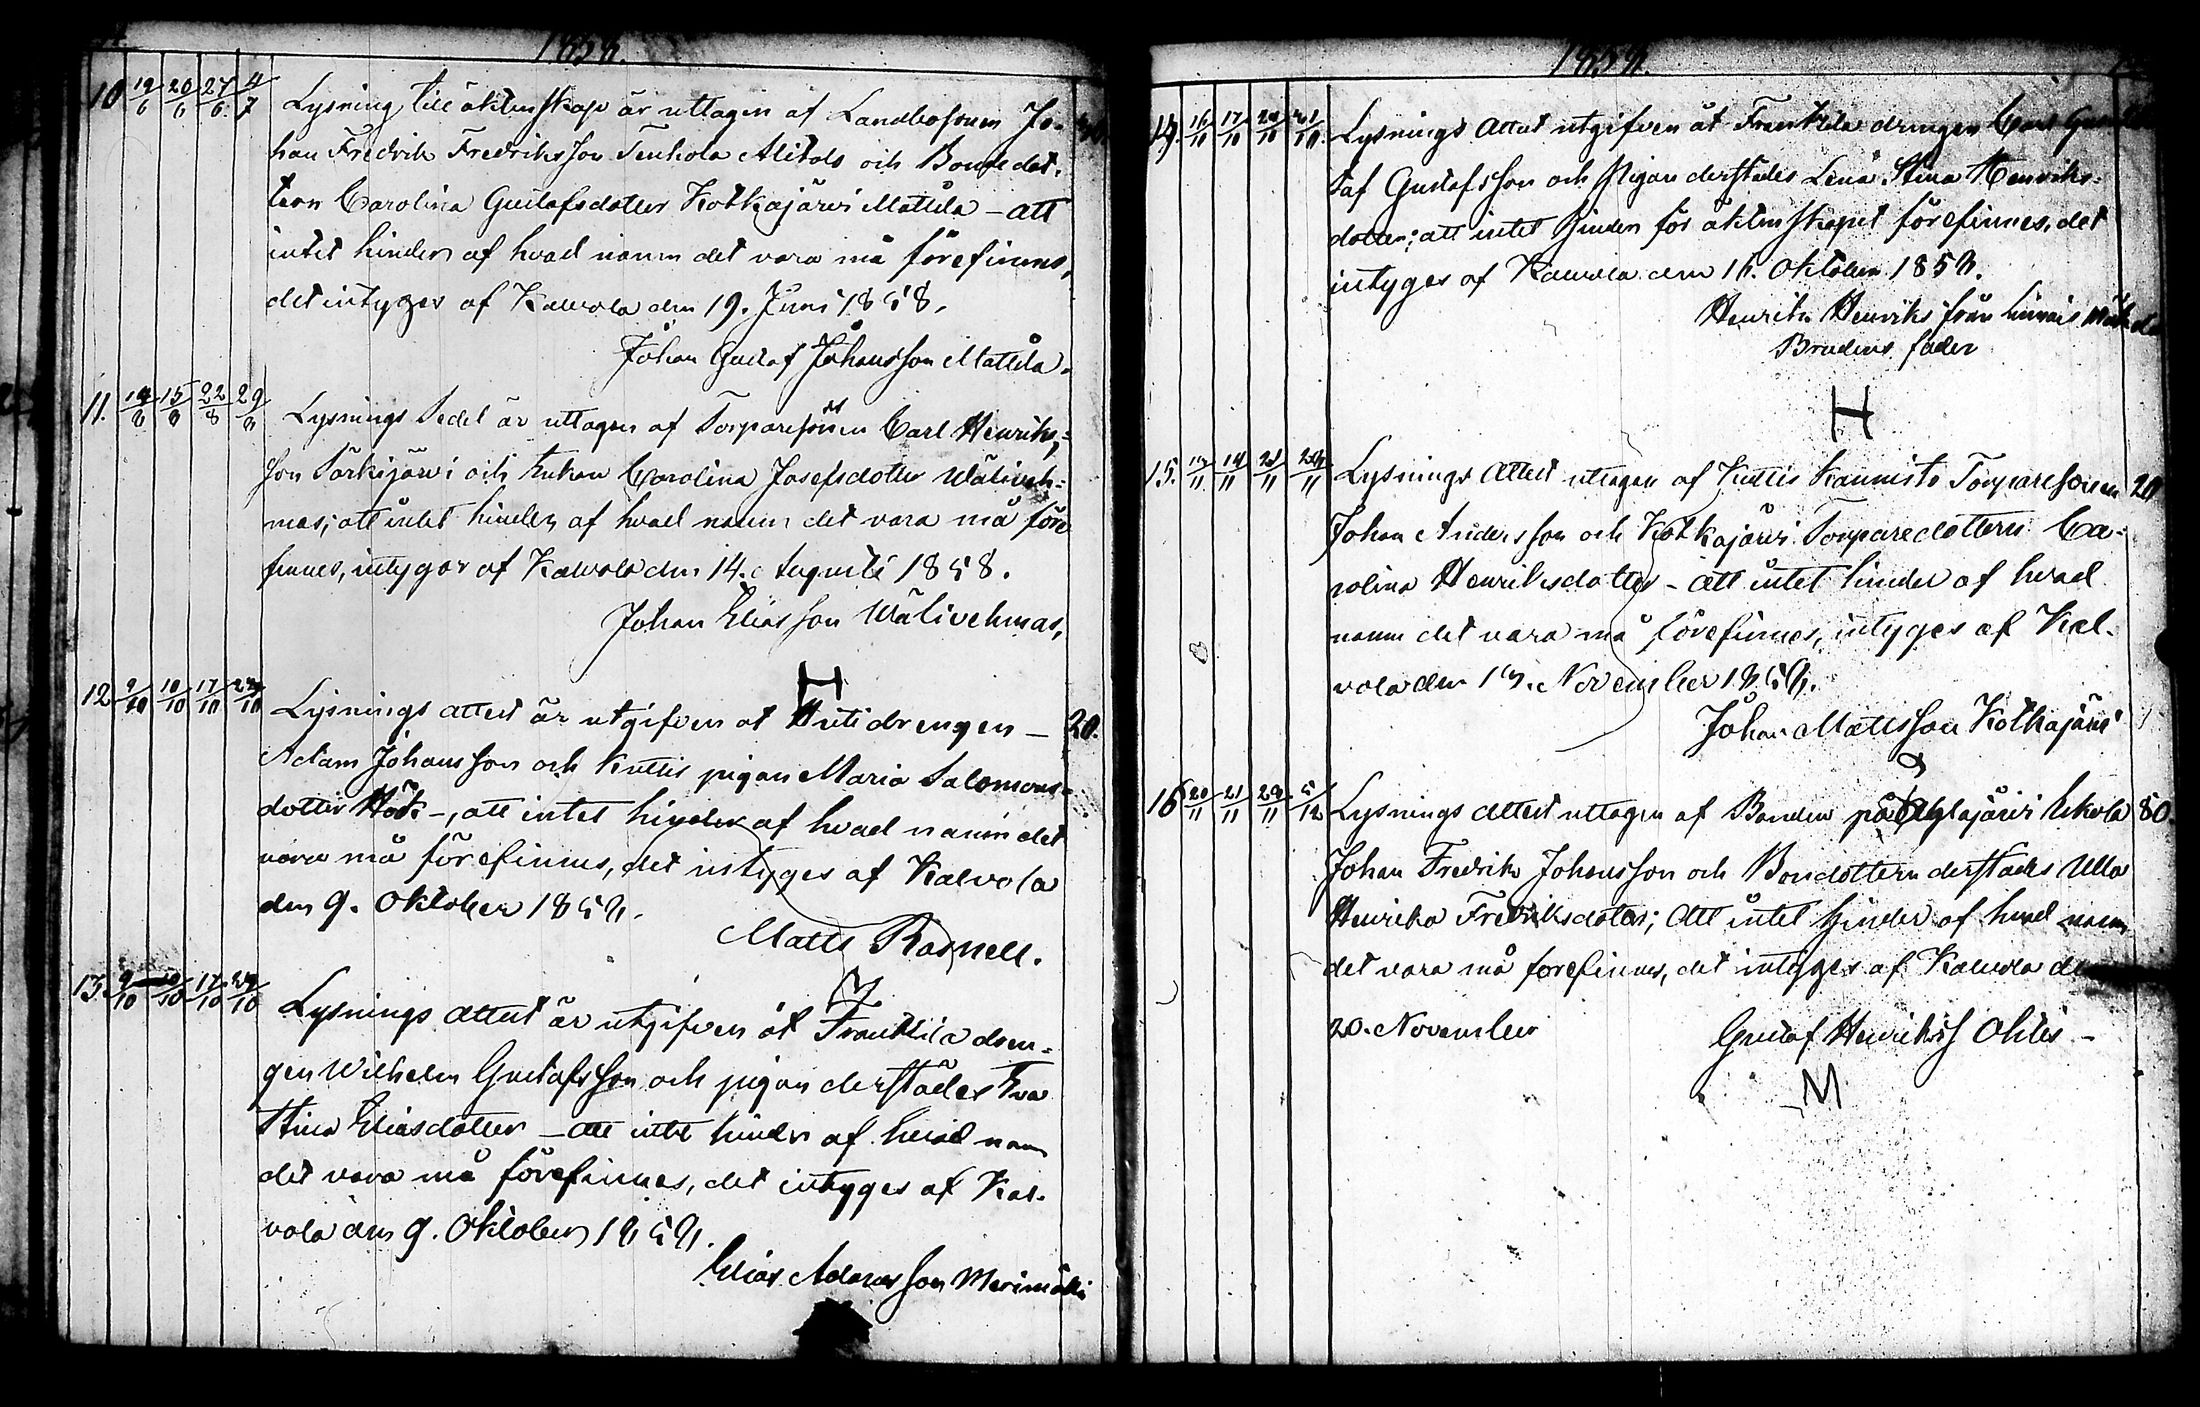 1858.
10 19/6 20/6 27/6 4/7 Lysning till äktenskap är uttagen af Landbosonen Jo-
han Fredrik Fredriksson Tenhola Alitalo och Bondedot-
tern Carolina Gustafsdotter Kotkajärvi Mattila - att
intet hinder af hvad namn det vara må förefinnes,
det intyges af Kalvola den 19. Juni 1858.
Johan Gustaf Johansson Mattila.
11. 14/8 15/8 22/8 29/8 Lysnings Sedel är uttagen af Torparesonen Carl Henriks-
son Särkijärvi och Enkan Carolina Josefsdotter Wäliveh-
mas; att intet hinder af hvad namn det vara må före
finnes, intygar af Kalvola den 14. Augusti 1858.
Johan Eliasson Wälivehmas,
12 9/10 10/10 17/10 24/10 Lysnings attest är utgifven åt drengen - 20.
Adam Johansson och Kuttis pigan Maria Salomons-
dotter Höök -, att intet hinder af hvad namn det
vara må förefinnes, det intyges af Kalvola
den 9. Oktober 1858.
Matts Rasnell.
13. 9/10 10/10 17/10 24/10 Lysnings attest är utgifven åt Franttila dren-
gen Wilhelm Gustafsson och pigan derstädes Eva
Stina Eliasdotter - att intet hinder af hvad namn
det vara må förefinnes, det intyges af Kal-
vola den 9. Oktober 1858.
Elias Adamsson Merimäki
1858.
14. 16/10 17/10 24/10 31/10 Lysnings Attest utgifven åt Franttila drengen Carl Gus
taf Gustafsson och Pigan derstädes Lena Stina Henriks-
dotter; att intet hinder för äktenskapet förefinnes, det
intyges af Kalvola den 16. Oktober 1858.
Henrik Henriks från
Brudens fader
H
15. 13/11 14/11 21/11 28/11 Lysnings Attest uttagen af Kuttis Kannisto Torparesonen 20
Johan Andersson och Kotkajärvi Torparedottern Ca-
rolina Henriksdotter - att intet hinder af hvad
namn det vara må förefinnes, intyges af Kal-
vola den 13. November 1858.
Johan Mattsson Kotkajärvi
16 20/11 21/11 28/11 5/12 Lysnings attest uttagen af Bonden på Ukola 80.
Johan Fredrik Johansson och Bondottern derstädes Ulla
Henrika Fredriksdotter; Att intet hinder af hvad namn
det vara må förefinnes, det intyges af Kalvola den
20. November Gustaf Henrikss Ohlis -
M